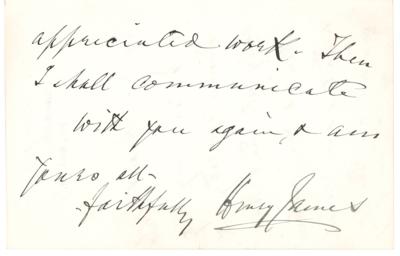 appreciated work. Then
I shall communicate
with you again, & am
Yours all-
faithfully
Henry James